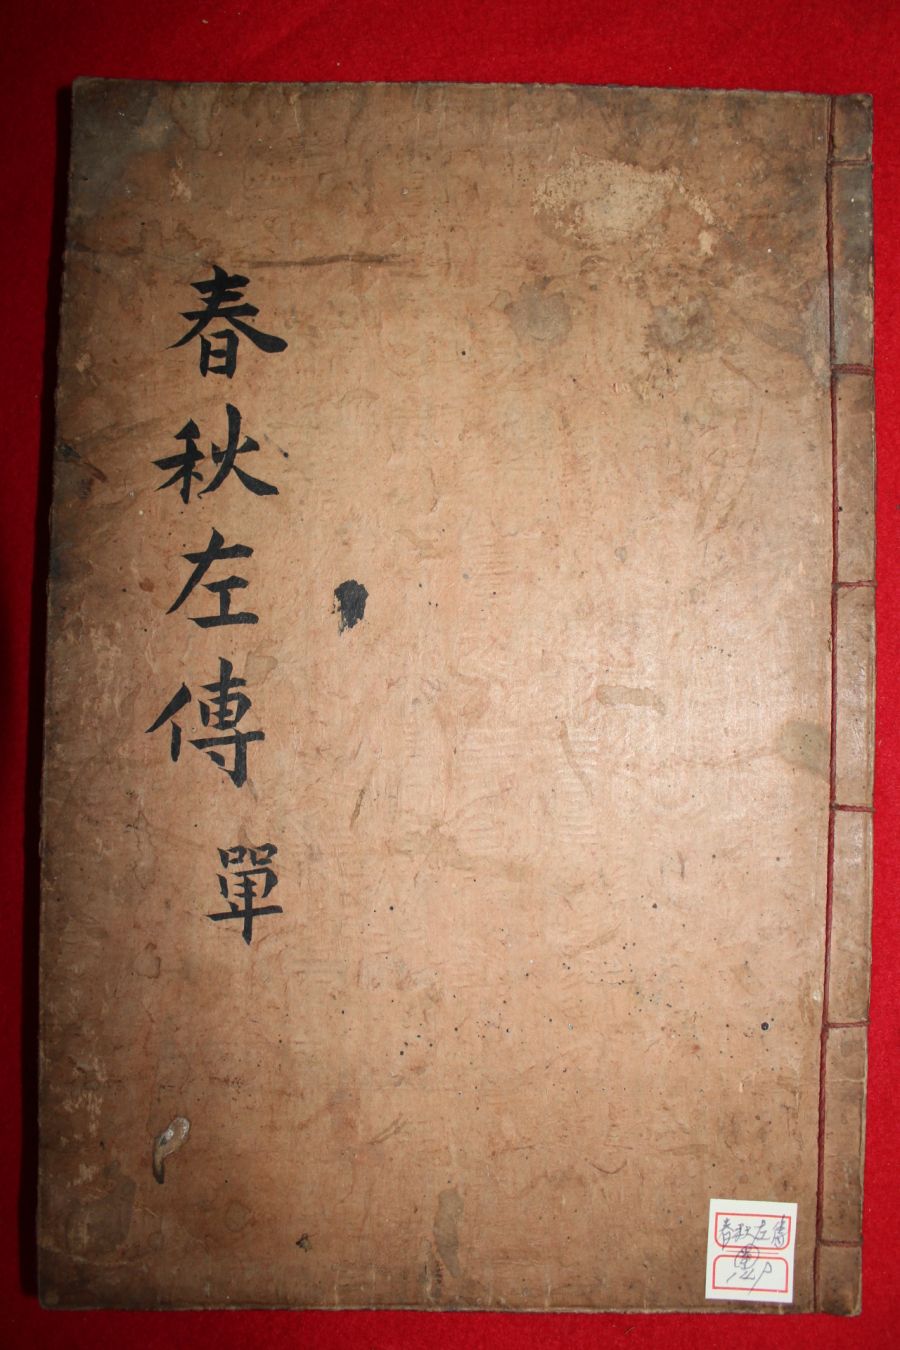 春秋左傳 單
春秋左傳
單